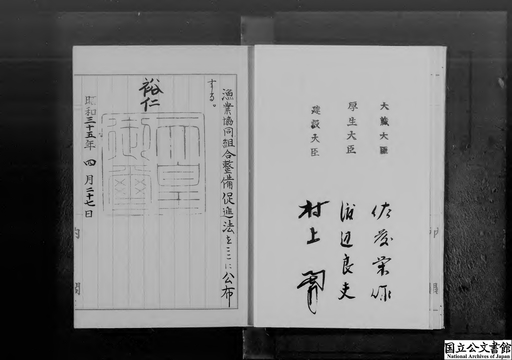 大藏大臣 佐藤栄作
厚生大臣 渡辺良夫
建設大臣 村上勇
漁業協同組合整備促進法をここに公布
する。
裕仁
天皇
御璽
昭和三十五年 四月二十七日
内閣
国立公文書館
National Archives of Japan